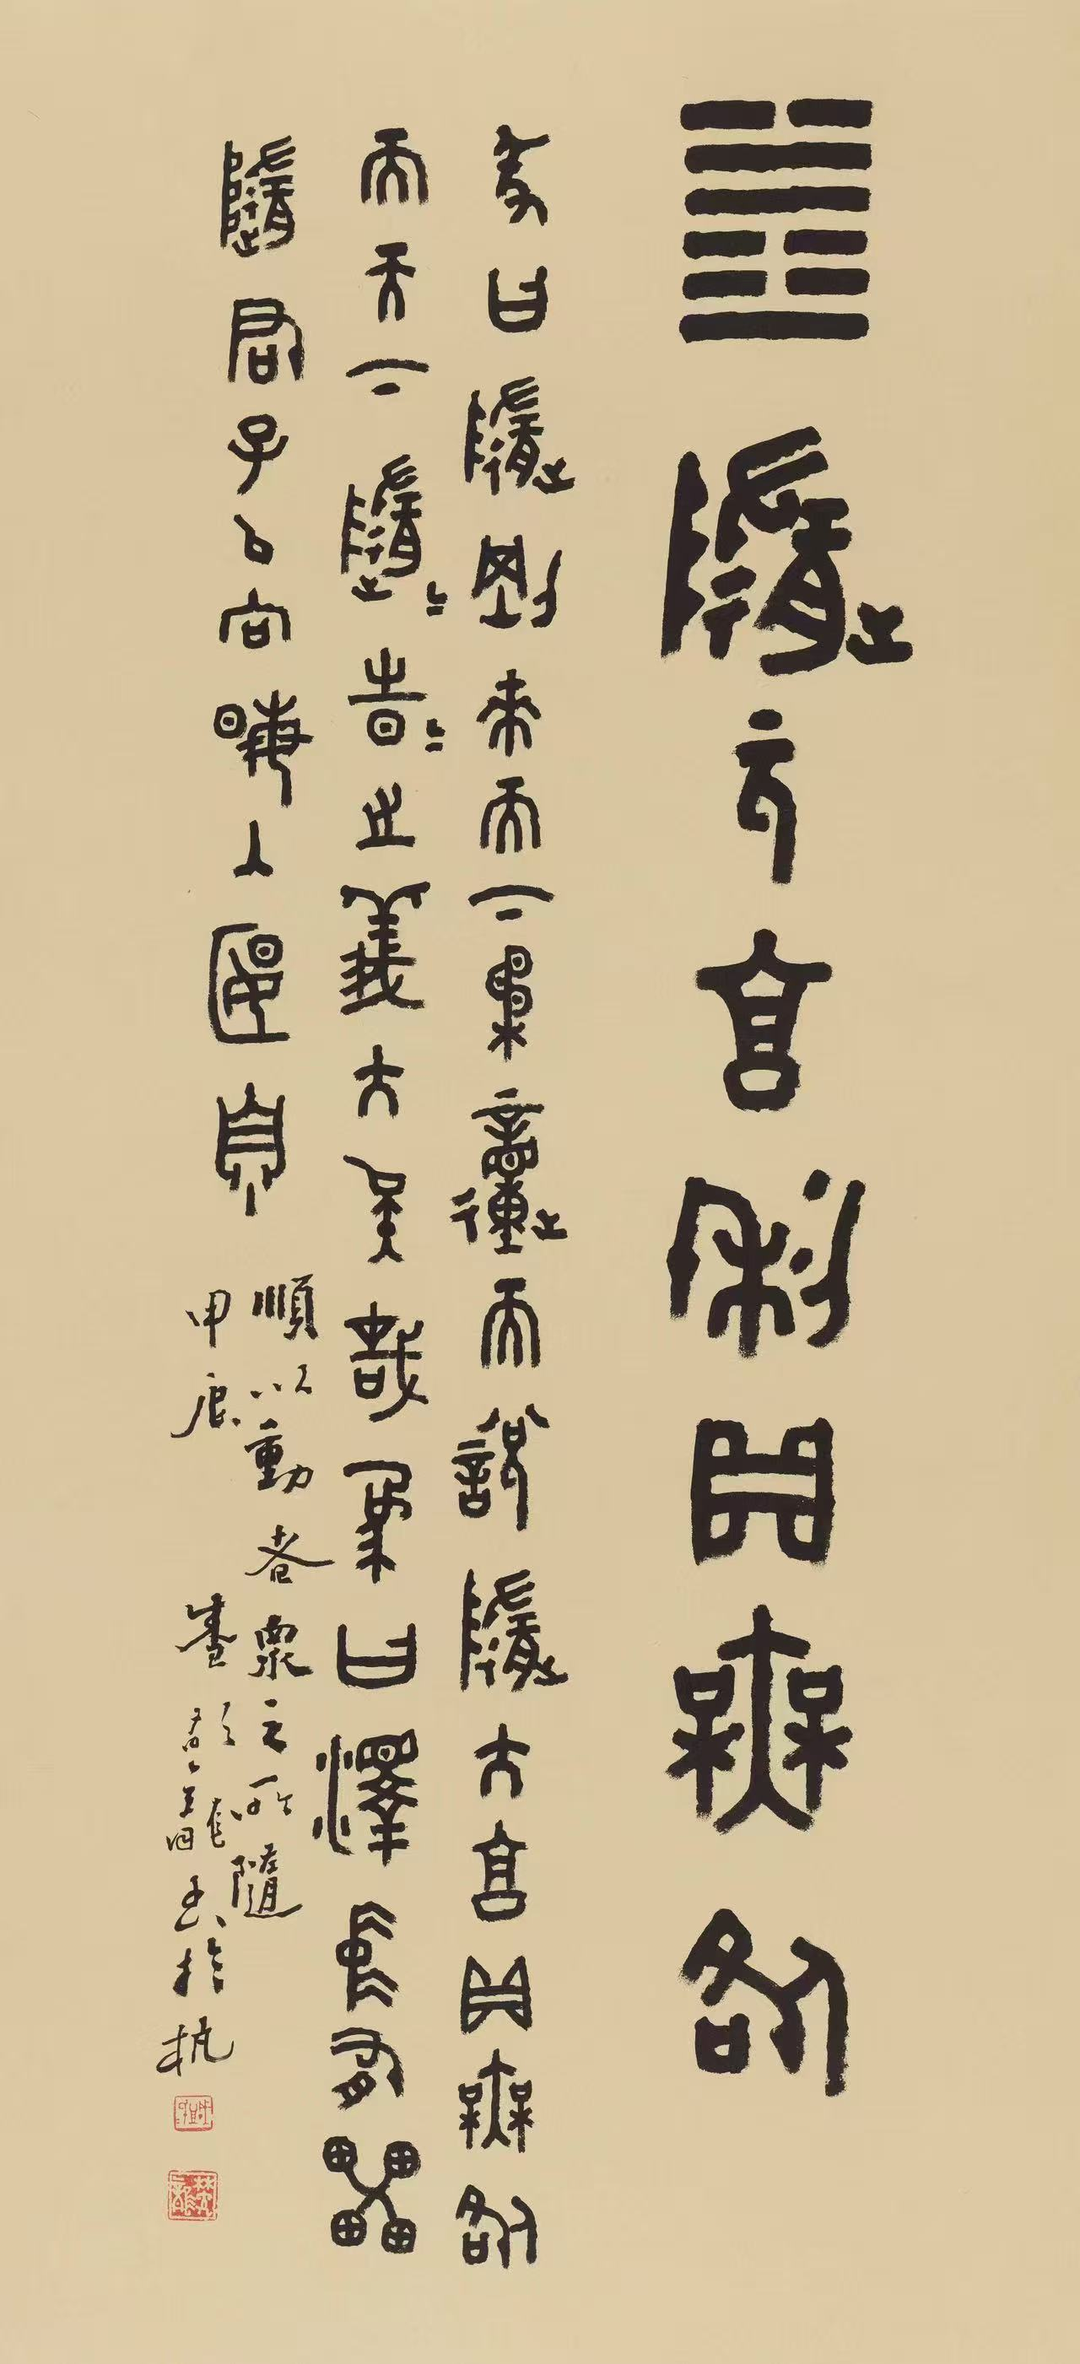 ䷐隨元亨利貞無咎
彖曰隨剛來而下柔動而說隨大亨貞無咎
而天下隨〻時〻之義大矣哉象曰澤中有雷
隨君子以向晦入宴息
順以動者眾之所隨
甲辰 書於杭